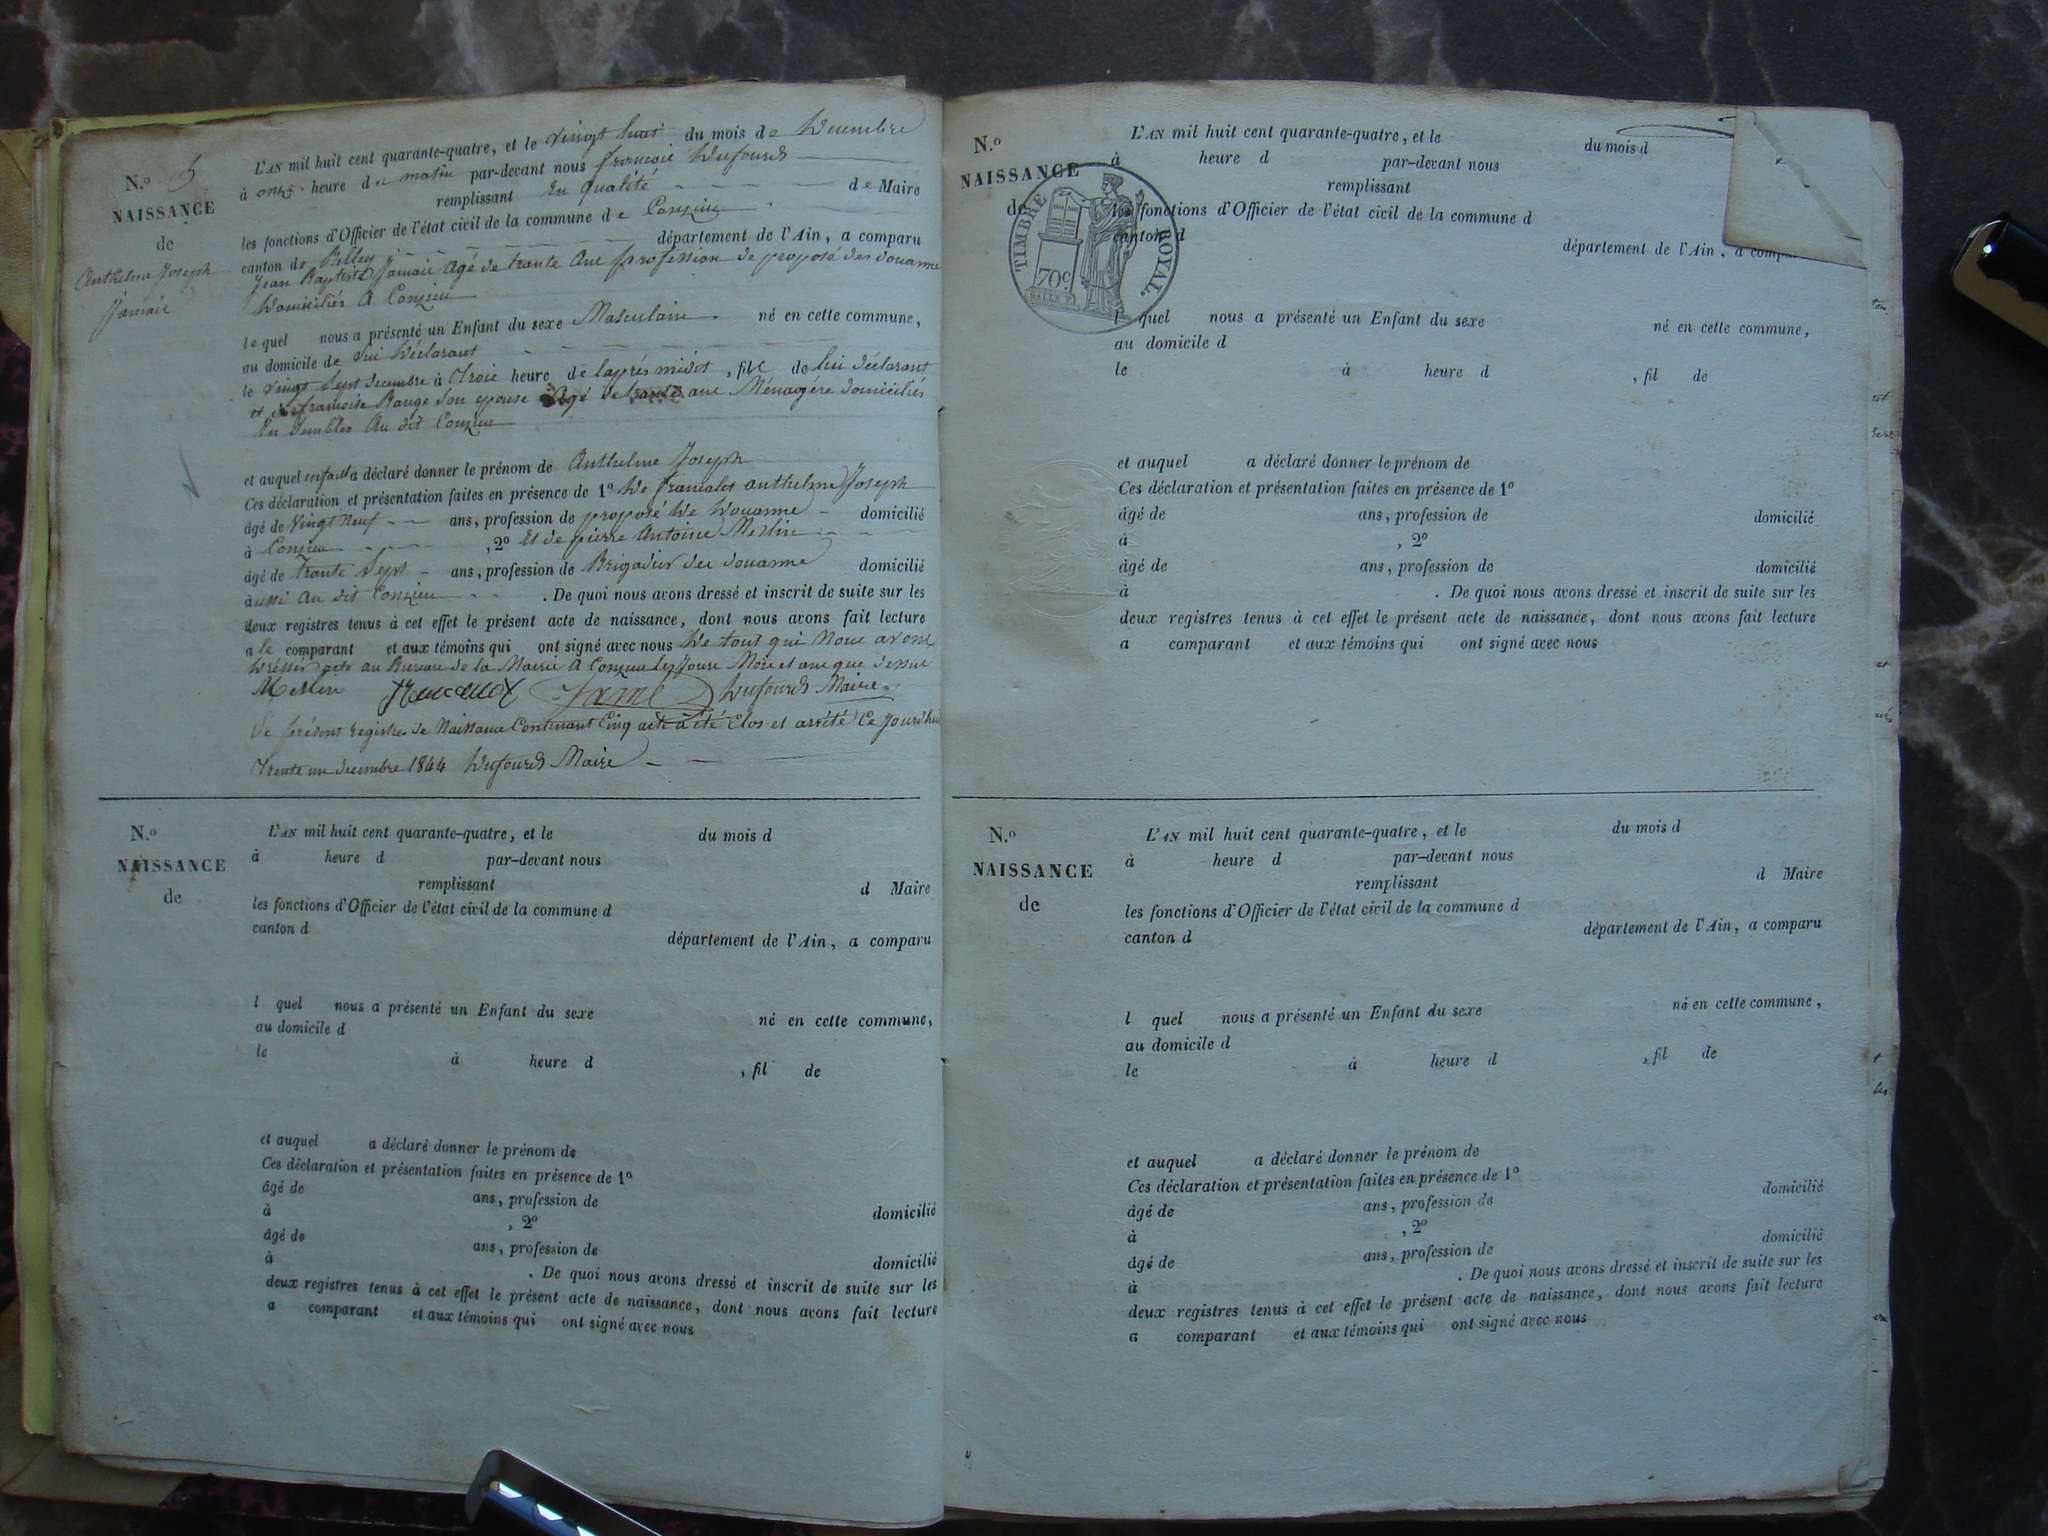 N.o 5
NAISSANCE
de
Anthelme Joseph
Jamaie
L'AN mil huit cent quarante-quatre, et le vingt huit du mois de Decembre
à onze heure du matin par-devant nous françois Dufourd
remplissant En qualité de Maire
les fonctions d'Officier de l'état civil de la commune de Conzieu
canton de Belley département de l'Ain, a comparu
Jean Baptiste Jamaie agé de trante ans profession de proposé des douanne
Domiciliés A Conzieu
le quel nous a présenté un Enfant du sexe Masculain né en cette commune,
au domicile de lui Déclarant
le vingt sept decembre à Troie heure de laprés midit, fils de lui déclarant
et de francoise Bauge son epouse agé de trante ans Ménagére domiciliés
En sembles Au dit Conzieu
et auquel enfant a déclaré donner le prénom de Anthelme Joseph
Ces déclaration et présentation faites en présence de 1o De anthelme Joseph
âgé de vingt neuf ans, profession de proposé De Douanne domicilié
à Conzieu, 2o Et de pierre Antoine Merlin
âgé de trante sept ans, profession de Brigadier des douanne domicilié
aussi Au dit Conzieu. De quoi nous avons dressé et inscrit de suite sur les
deux registres tenus à cet effet le présent acte de naissance, dont nous avons fait lecture
a le comparant et aux témoins qui ont signé avec nous De tout qui Nous avons
Dressér acte au Bureau de la Mairie A Conzieu Les Jours Mois et ans que dessus
Merlin Jame Dufourd Maire
Le présent registre de Naissance Contenant Cinq acte à été Clos et arrêté Ce Jourd'hui
Trente un decembre 1844 Dufourd Maire
N.o
NAISSANCE
de
L'AN mil huit cent quarante-quatre, et le du mois d
à heure d par-devant nous
remplissant d Maire
les fonctions d'Officier de l'état civil de la commune d
canton d département de l'Ain, a comparu
l quel nous a présenté un Enfant du sexe né en cette commune,
au domicile d
le à heure d , fil de
et auquel a déclaré donner le prénom de
Ces déclaration et présentation faites en présence de 1o
âgé de ans, profession de domicilié
à , 2o
âgé de ans, profession de domicilié
à . De quoi nous avons dressé et inscrit de suite sur les
deux registres tenus à cet effet le présent acte de naissance, dont nous avons fait lecture
a comparant et aux témoins qui ont signé avec nous
N.o
NAISSANCE
de
TIMBRE ROYAL.
70c.
L'AN mil huit cent quarante-quatre, et le du mois d
à heure d par-devant nous
remplissant
les fonctions d'Officier de l'état civil de la commune d
canton d département de l'Ain, a compa
l quel nous a présenté un Enfant du sexe né en cette commune,
au domicile d
le à heure d , fil de
et auquel a déclaré donner le prénom de
Ces déclaration et présentation faites en présence de 1o
âgé de ans, profession de domicilié
à , 2o
âgé de ans, profession de domicilié
à . De quoi nous avons dressé et inscrit de suite sur les
deux registres tenus à cet effet le présent acte de naissance, dont nous avons fait lecture
a comparant et aux témoins qui ont signé avec nous
N.o
NAISSANCE
de
L'AN mil huit cent quarante-quatre, et le du mois d
à heure d par-devant nous
remplissant d Maire
les fonctions d'Officier de l'état civil de la commune d
canton d département de l'Ain, a comparu
l quel nous a présenté un Enfant du sexe né en cette commune,
au domicile d
le à heure d , fil de
et auquel a déclaré donner le prénom de
Ces déclaration et présentation faites en présence de 1o
âgé de ans, profession de domicilié
à , 2o
âgé de ans, profession de domicilié
à . De quoi nous avons dressé et inscrit de suite sur les
deux registres tenus à cet effet le présent acte de naissance, dont nous avons fait lecture
a comparant et aux témoins qui ont signé avec nous